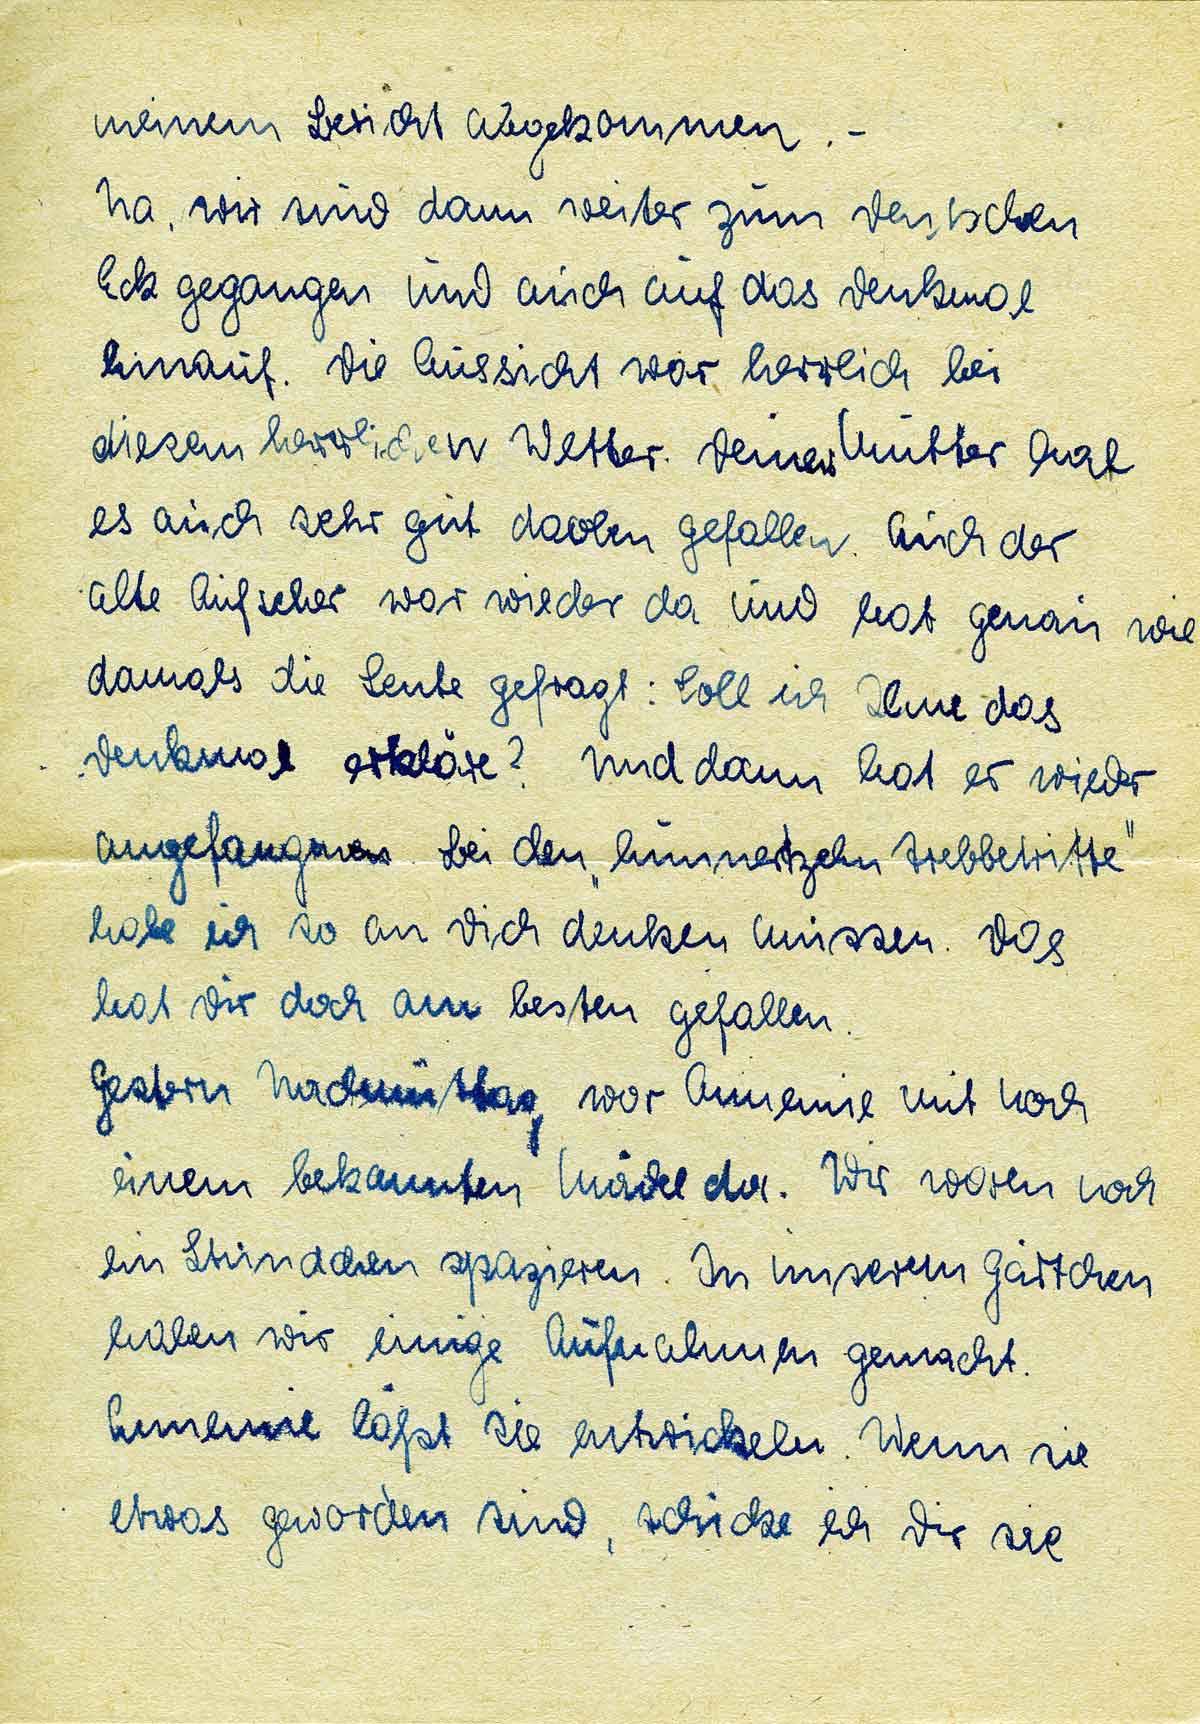 meinem Bericht abgekommen. –
Na, wir sind dann weiter zum Deutschen
Eck gegangen und auch auf das Denkmal
hinauf. Die Aussicht war herrlich bei
diesem herrlichen Wetter. Deiner Mutter hat
es auch sehr gut daoben gefallen. Auch der
alte Aufseher war wieder da und hat genau wie
damals die Leute gefragt: Soll ich Ihne das
Denkmal erkläre? Und dann hat er wieder
angefangen. Bei den „hunnertzehn Trebbetritte"
habe ich so an Dich denken müssen. Das
hat Dir doch am besten gefallen.
Gestern Nachmittag, war Annemie mit noch
einem bekannten Mädel da. Wir waren noch
ein Stündchen spazieren. In unserem Gärtchen
haben wir einige Aufnahmen gemacht.
Annemie läßt sie entwickeln. Wenn sie
etwas geworden sind, schicke ich Dir sie